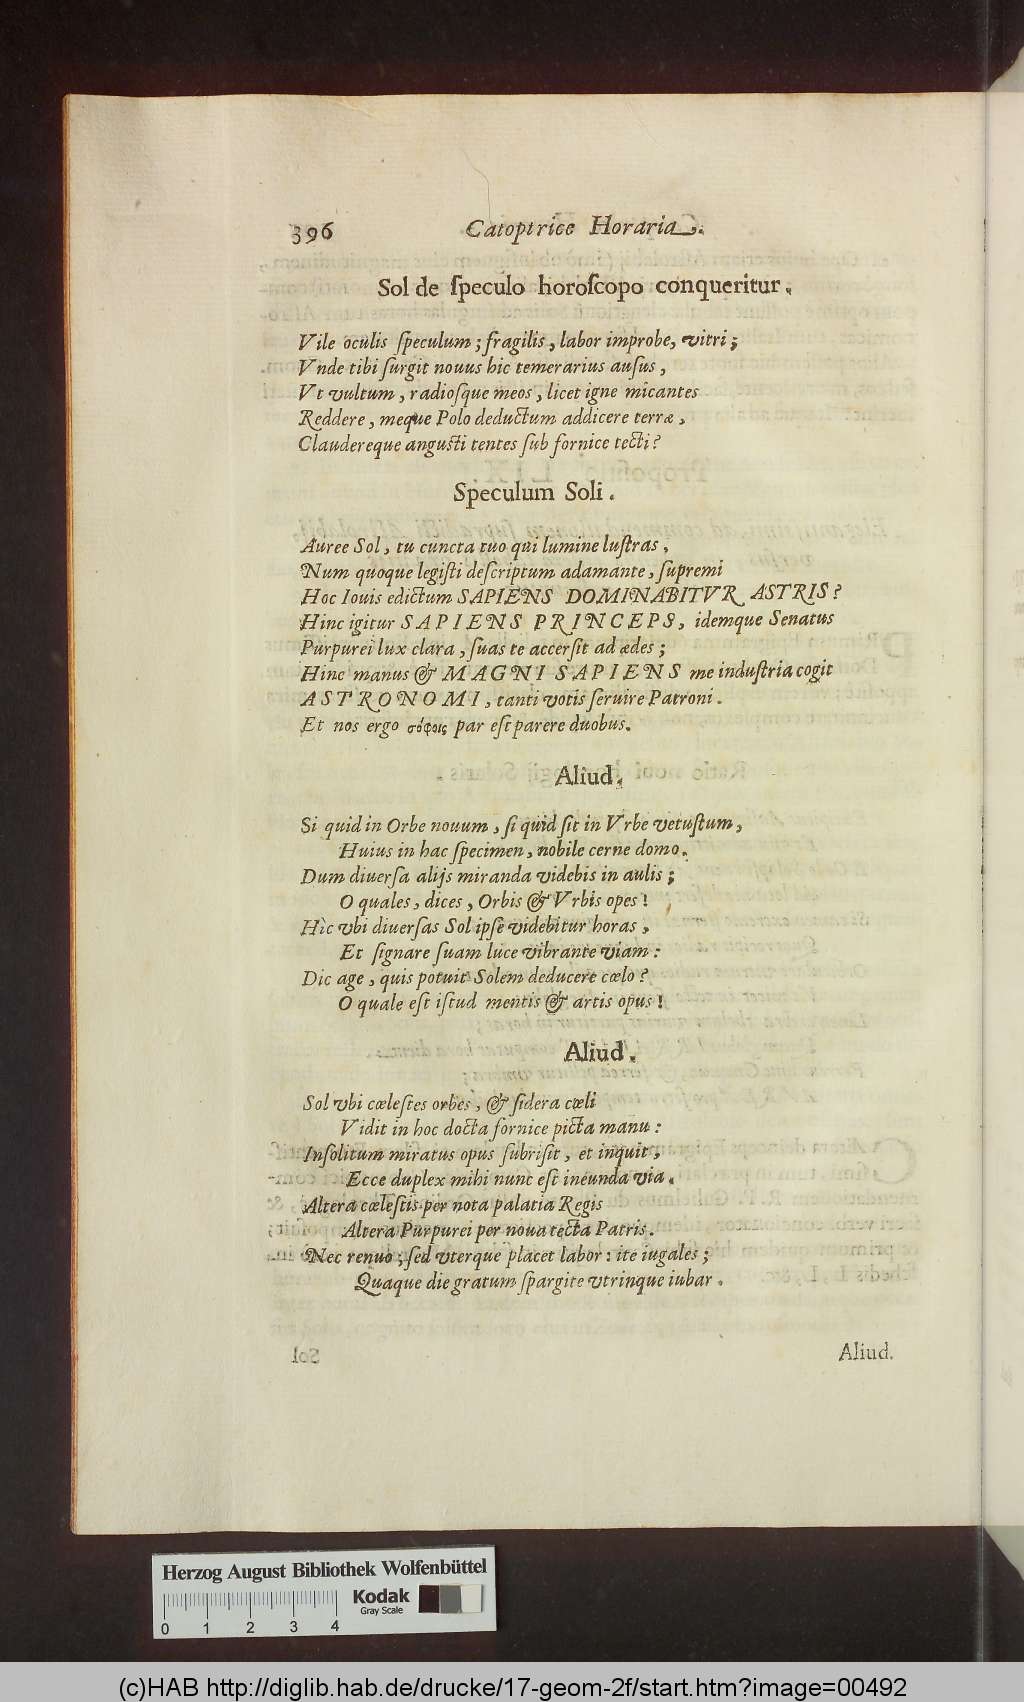 396 Catoptrice Horaria.
Sol de ſpeculo horoſcopo conqueritur.
Vile oculis ſpeculum; fragilis, labor improbe, vitri;
Vnde tibi ſurgit nouus hic temerarius auſus,
Vt vultum, radioſque meos, licet igne micantes
Reddere, meque Polo deductum addicere terræ,
Claudereque anguſti tentes ſub fornice tecti?
Speculum Soli.
Auree Sol, tu cuncta tuo qui lumine luſtras,
Num quoque legiſti deſcriptum adamante, ſupremi
Hoc Iouis edictum SAPIENS DOMINABITVR ASTRIS?
Hinc igitur SAPIENS PRINCEPS, idemque Senatus
Purpurei lux clara, ſuas te accerſit ad ædes;
Hinc manus & MAGNI SAPIENS me induſtria cogit
ASTRONOMI, tanti votis ſeruire Patroni.
Et nos ergo σόφοις par eſt parere duobus.
Aliud.
Si quid in Orbe nouum, ſi quid ſit in Vrbe vetuſtum,
Huius in hac ſpecimen, nobile cerne domo.
Dum diuerſa alijs miranda videbis in aulis;
O quales, dices, Orbis & Vrbis opes!
Hìc vbi diuerſas Sol ipſe videbitur horas,
Et ſignare ſuam luce vibrante viam:
Dic age, quis potuit Solem deducere cœlo?
O quale eſt iſtud mentis & artis opus!
Aliud.
Sol vbi cœleſtes orbes, & ſidera cœli
Vidit in hoc docta fornice picta manu:
Inſolitum miratus opus ſubriſit, et inquit,
Ecce duplex mihi nunc eſt ineunda via.
Altera cœleſtis per nota palatia Regis
Altera Purpurei per noua tecta Patris.
Nec renuo; ſed vterque placet labor: ite iugales;
Quaque die gratum ſpargite vtrinque iubar.
Aliud.
Herzog August Bibliothek Wolfenbüttel
Kodak
Gray Scale
0 1 2 3 4
(c)HAB http://diglib.hab.de/drucke/17-geom-2f/start.htm?image=00492